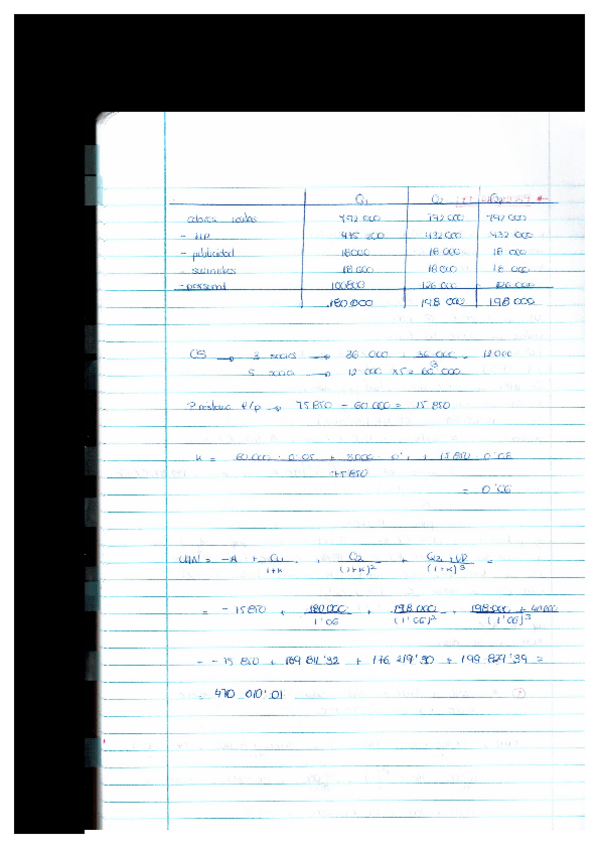 Q1 Q2 Q3
cobros ventas 792 000 792 000 792 000
- MP 475 200 432 000 432 000
- publicidad 18000 18 000 18 000
- suministros 18 000 18 000 18 000
- personal 100800 126 000 126 000
180 000 198 000 198 000
CS → 3 socios → 36 000 36 000 = 12000
3
5 socios → 12 000 x 5 = 60 000
Préstamo l/p → 75 850 - 60 000 = 15 850
K = 60.000 · 0'05 + 15 850 0'08
75 850
= 0'06
VAN = -A + Q1 + Q2 + Q3 + VR =
1+K (1+K)² (1+K)³
= - 15850 + 180 000 + 198 000 + 198 000 +
1'06 (1'06)² (1'06)³
= - 75 850 + 169 811'32 + 176 219'30 + 199 829'39 =
= 470 010'01